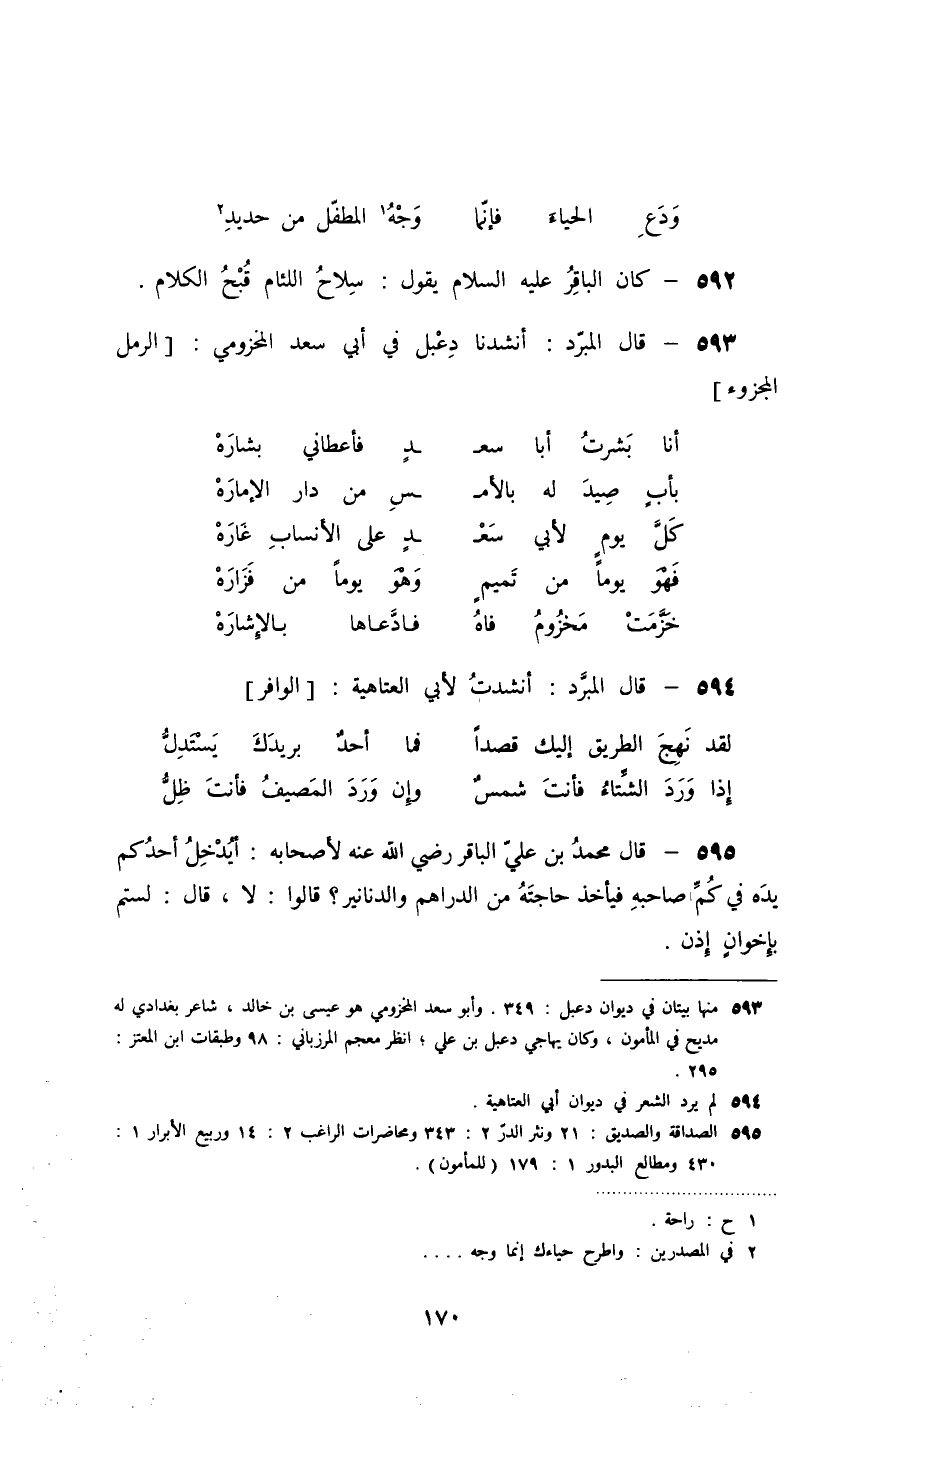 وَدَعِ الحياءَ فإنّما وَجْهُ١ المطفّل من حديدِ٢
٥٩٢ – كان الباقِرُ عليه السلام يقول : سِلاحُ اللئام قُبْحُ الكلام .
٥٩٣ – قال المبرّد : أنشدنا دِعْبل في أبي سعد المخزومي : [ الرمل
المجزوء ]
أنا بَشرتُ أبا سعـ ـدٍ فأعطاني بشارَهْ
بأبٍ صِيدَ له بالأمـ ـسِ من دار الإمارَهْ
كلَّ يومٍ لأبي سَعْـ ـدٍ على الأنسابِ غَارَهْ
فَهْوَ يوماً من تَميمٍ وَهْوَ يوماً من فَزَارَهْ
خَزَّمَتْ مَخزُومُ فاهُ فادَّعاها بالإِشارَهْ
٥٩٤ – قال المبرَّد : أنشدتُ لأبي العتاهية : [ الوافر ]
لقد نَهِجَ الطريق إليك قصداً فما أحدٌ بريدَكَ يَسْتَدِلُّ
إذا وَرَدَ الشِّتاءُ فأنتَ شمسٌ وإن وَرَدَ المَصيفُ فأنتَ ظِلُّ
٥٩٥ – قال محمدُ بن عليّ الباقر رضي الله عنه لأصحابه : أيُدْخِلُ أحدُكم
يدَه في كُمِّ صاحبهِ فيأخذ حاجتَهُ من الدراهم والدنانير؟ قالوا : لا ، قال : لستم
بإِخوانٍ إذن .
٥٩٣ منها بيتان في ديوان دعبل : ٣٤٩ . وأبو سعد المخزومي هو عيسى بن خالد ، شاعر بغدادي له
مديح في المأمون ، وكان يهاجي دعبل بن علي ؛ انظر معجم المرزباني : ٩٨ وطبقات ابن المعتز :
٢٩٥ .
٥٩٤ لم يرد الشعر في ديوان أبي العتاهية .
٥٩٥ الصداقة والصديق : ٢١ ونثر الدرّ ٢ : ٣٤٣ ومحاضرات الراغب ٢ : ١٤ وربيع الأبرار ١ :
٤٣٠ ومطالع البدور ١ : ١٧٩ ( للمأمون ) .
١ ح : راحة .
٢ في المصدرين : واطرح حياءك إنما وجه . . . .
١٧٠